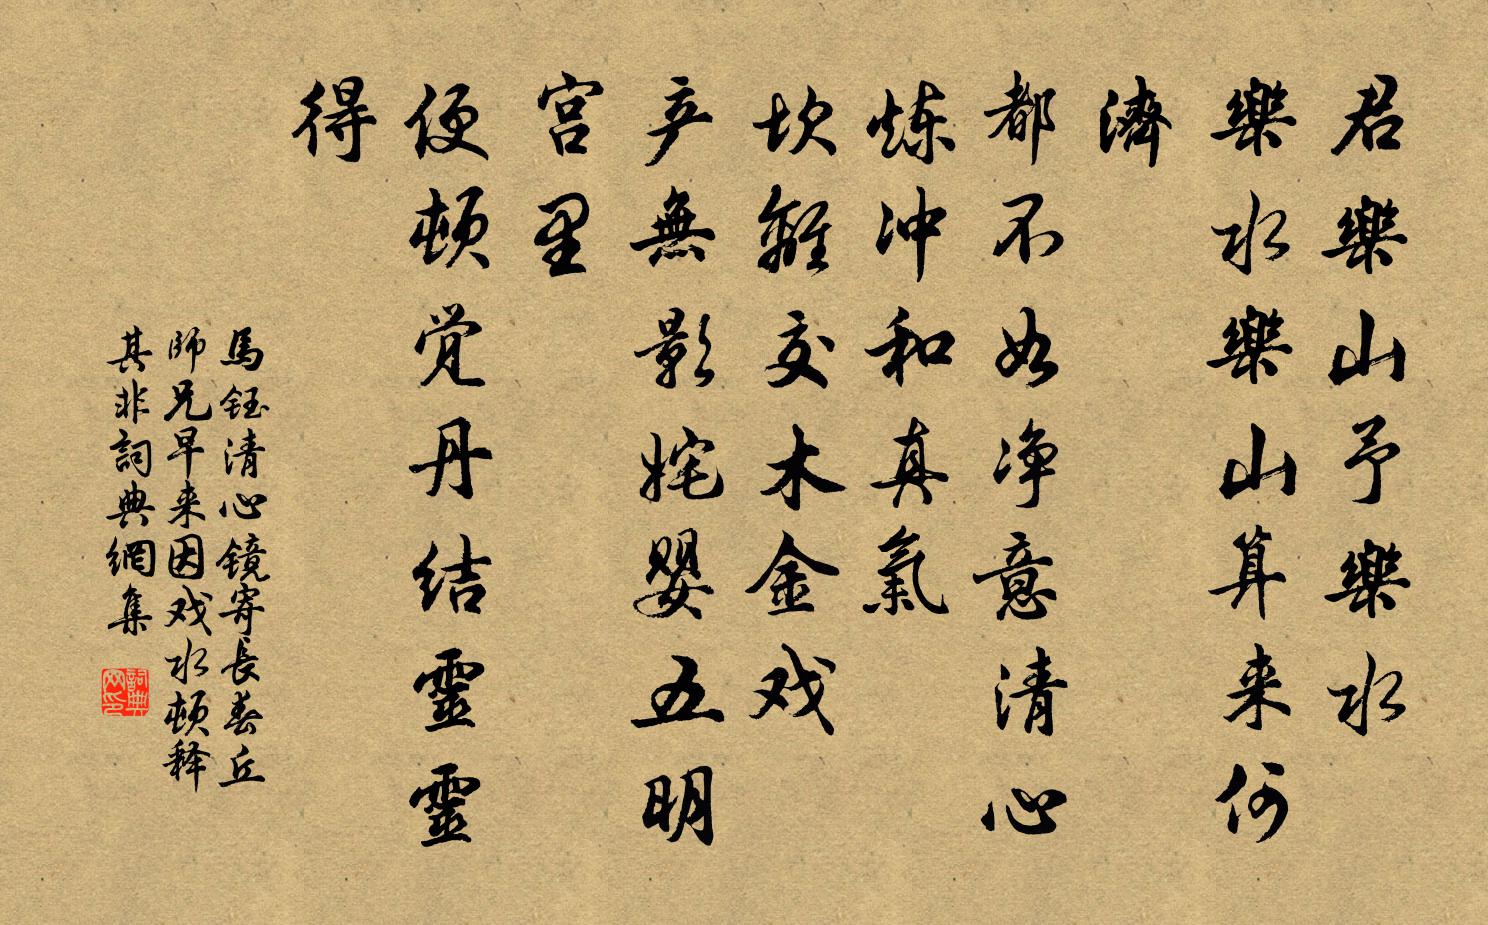 君樂山予樂水
樂水樂山算来何
濟
都不如净意清心
炼冲和真氣
坎離交木金戏
产無影姹婴五明
宫里
便顿觉丹结靈靈
得
馬鈺清心镜寄長春丘
師兄早来因戏水顿释
其非詞典網集
詞典
网印